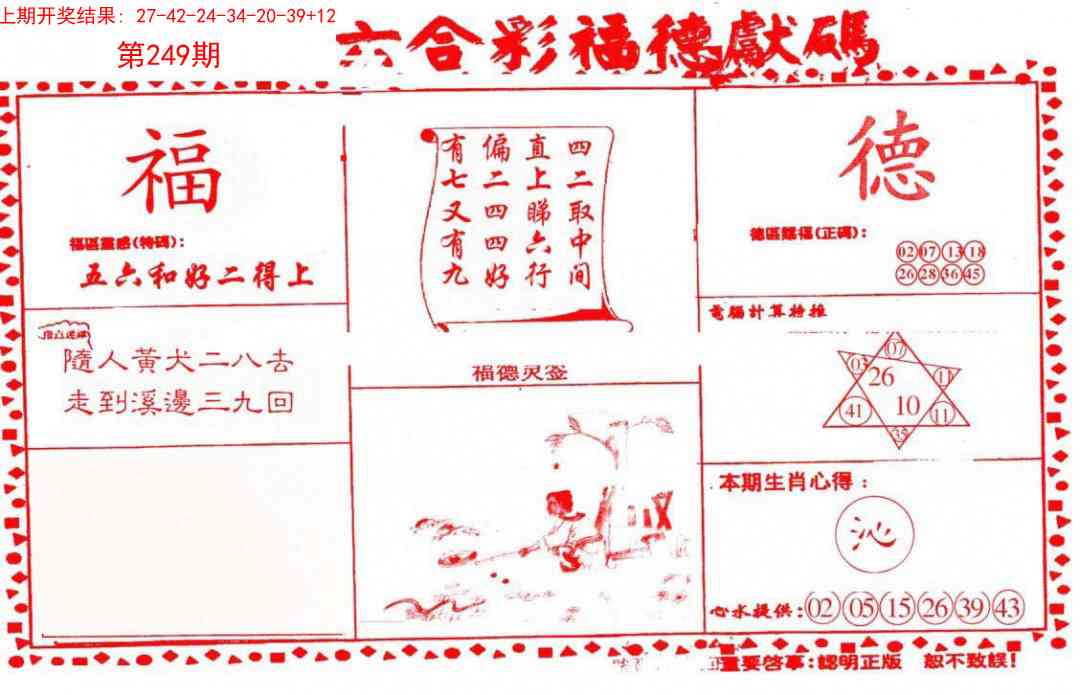 上期开奖结果: 27-42-24-34-20-39+12
第249期
六合彩福德獻碼
福
福區靈感(特碼):
五六和好二得上
四二取中间
直上睇六行
偏二四四好
有七又有九
德
德區賜福(正碼):
02 07 13 18
26 28 36 45
隨人黃犬二八去
走到溪邊三九回
電腦計算榜推
07
03 26 11
41 10 11
35
福德灵签
本期生肖心得:
沁
心水提供: 02 05 15 26 39 43
重要啓事:認明正版 恕不致誤!